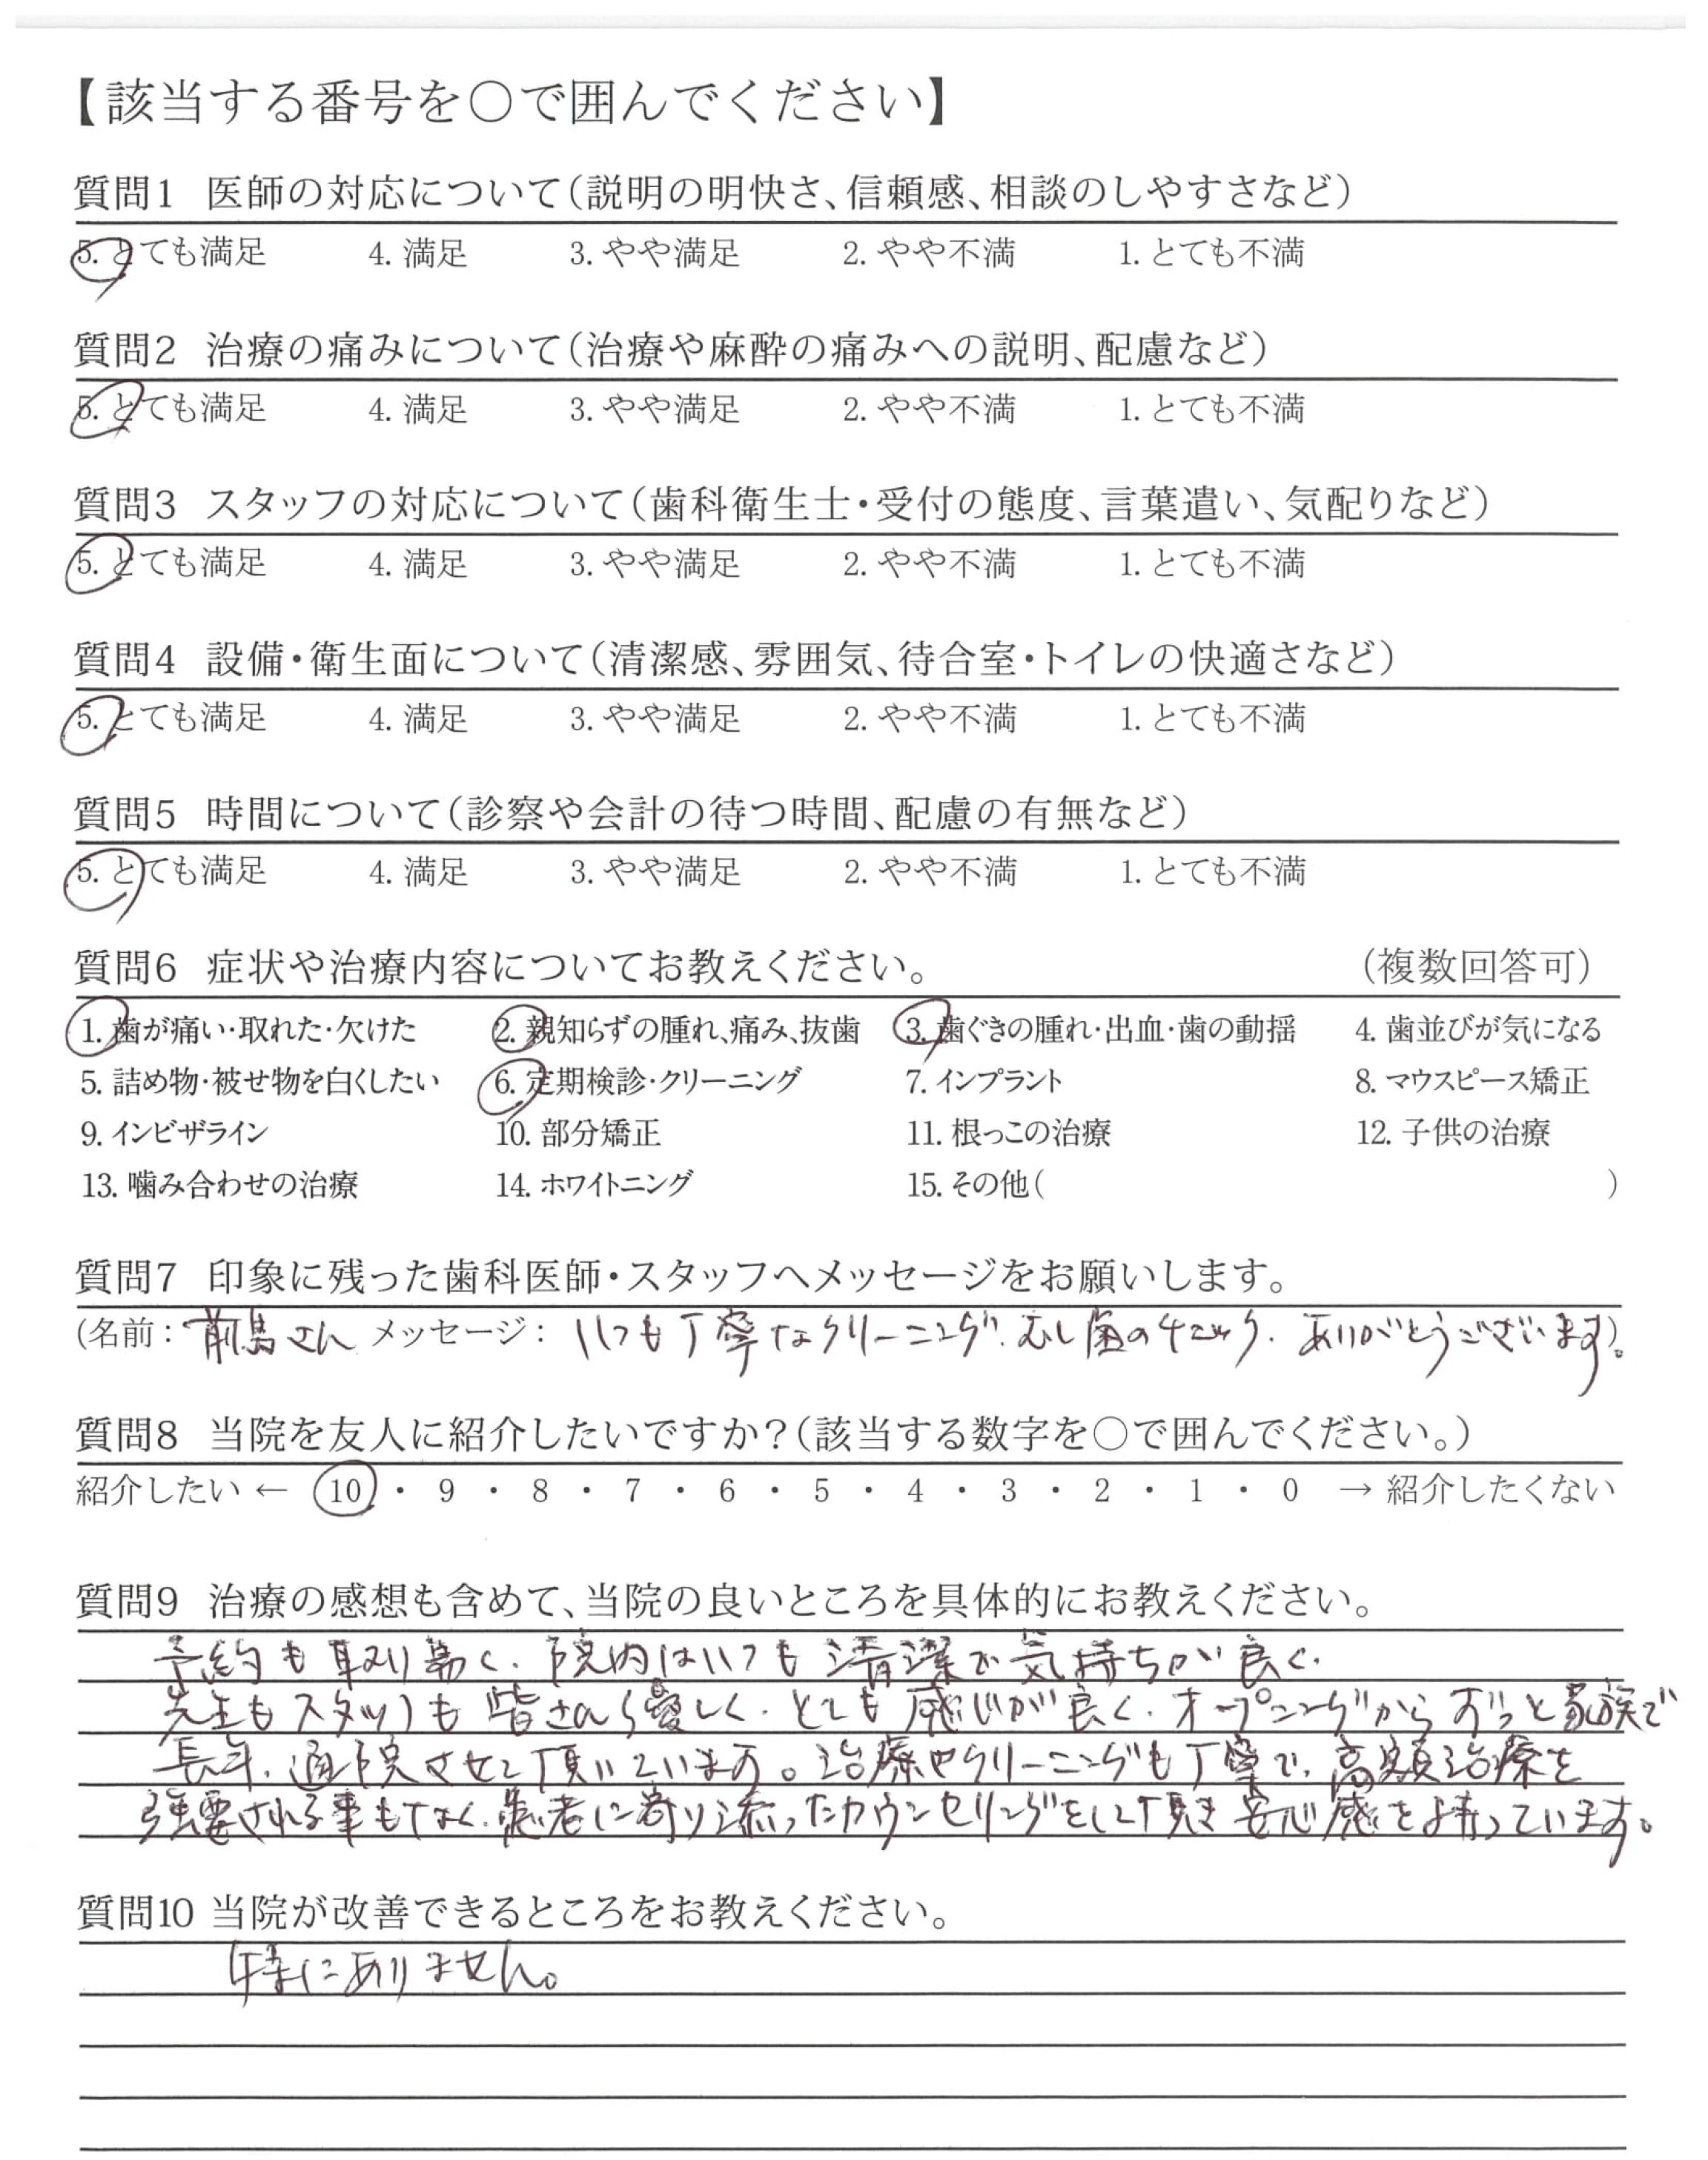 【該当する番号を○で囲んでください】
質問1 医師の対応について(説明の明快さ、信頼感、相談のしやすさなど)
5. とても満足 4. 満足 3. やや満足 2. やや不満 1. とても不満
質問2 治療の痛みについて(治療や麻酔の痛みへの説明、配慮など)
5. とても満足 4. 満足 3. やや満足 2. やや不満 1. とても不満
質問3 スタッフの対応について(歯科衛生士・受付の態度、言葉遣い、気配りなど)
5. とても満足 4. 満足 3. やや満足 2. やや不満 1. とても不満
質問4 設備・衛生面について(清潔感、雰囲気、待合室・トイレの快適さなど)
5. とても満足 4. 満足 3. やや満足 2. やや不満 1. とても不満
質問5 時間について(診察や会計の待つ時間、配慮の有無など)
5. とても満足 4. 満足 3. やや満足 2. やや不満 1. とても不満
質問6 症状や治療内容についてお教えください。 (複数回答可)
1. 歯が痛い・取れた・欠けた 2. 親知らずの腫れ、痛み、抜歯 3. 歯ぐきの腫れ・出血・歯の動揺 4. 歯並びが気になる
5. 詰め物・被せ物を白くしたい 6. 定期検診・クリーニング 7. インプラント 8. マウスピース矯正
9. インビザライン 10. 部分矯正 11. 根っこの治療 12. 子供の治療
13. 噛み合わせの治療 14. ホワイトニング 15. その他( )
質問7 印象に残った歯科医師・スタッフへメッセージをお願いします。
(名前: 前島さん メッセージ: いつも丁寧なクリーニング、むし歯のチェック、ありがとうございます。)
質問8 当院を友人に紹介したいですか?(該当する数字を○で囲んでください。)
紹介したい ← 10 ・ 9 ・ 8 ・ 7 ・ 6 ・ 5 ・ 4 ・ 3 ・ 2 ・ 1 ・ 0 → 紹介したくない
質問9 治療の感想も含めて、当院の良いところを具体的にお教えください。
予約も取り易く、院内はいつも清潔で気持ちが良く、
先生もスタッフも皆さん優しく、とても感じが良く、オープニングからずっと家族で
長年、通院させて頂いています。治療やクリーニングも丁寧で、高額治療を
強要される事もなく、患者に寄り添ったカウンセリングをして頂き安心感を持っています。
質問10 当院が改善できるところをお教えください。
特にありません。